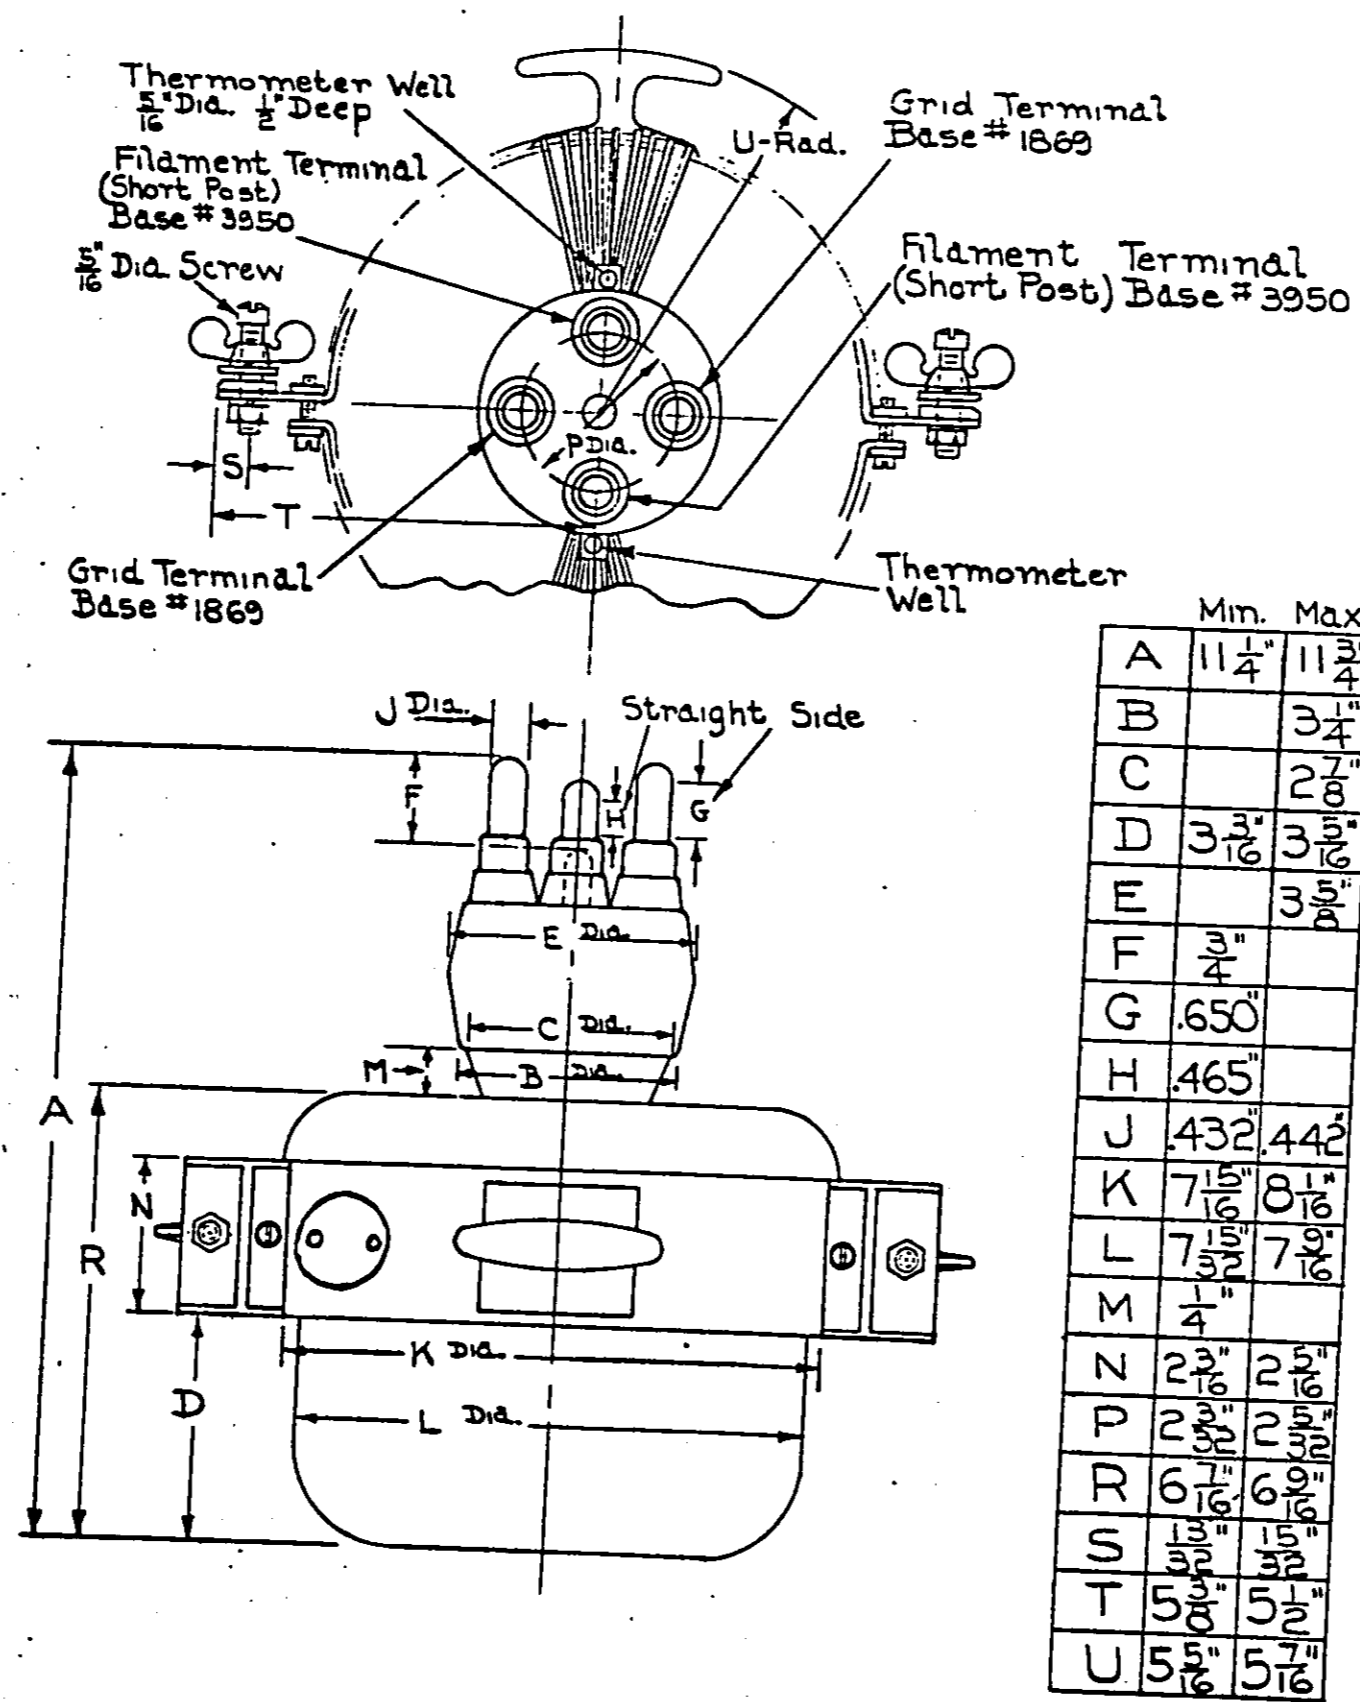 Thermometer Well
5/16" Dia. 1/2" Deep
Grid Terminal
Base # 1869
U-Rad.
Filament Terminal
(Short Post)
Base # 3950
5/16" Dia Screw
Filament Terminal
(Short Post) Base # 3950
P Dia.
S
T
Grid Terminal
Base # 1869
Thermometer
Well
J Dia.
Straight Side
F
H
G
E Dia.
C Dia.
M
B Dia.
A
N
R
K Dia.
D
L Dia.
Min. Max
A 11 1/4" 11 3/4"
B 3 1/4"
C 2 7/8"
D 3 3/16" 3 5/16"
E 3 5/8"
F 3/4"
G .650"
H .465"
J .432" .442"
K 7 15/16" 8 1/16"
L 7 15/32" 7 9/16"
M 1/4"
N 2 3/16" 2 5/16"
P 2 3/32" 2 5/32"
R 6 7/16" 6 9/16"
S 13/32" 15/32"
T 5 3/8" 5 1/2"
U 5 5/16" 5 7/16"